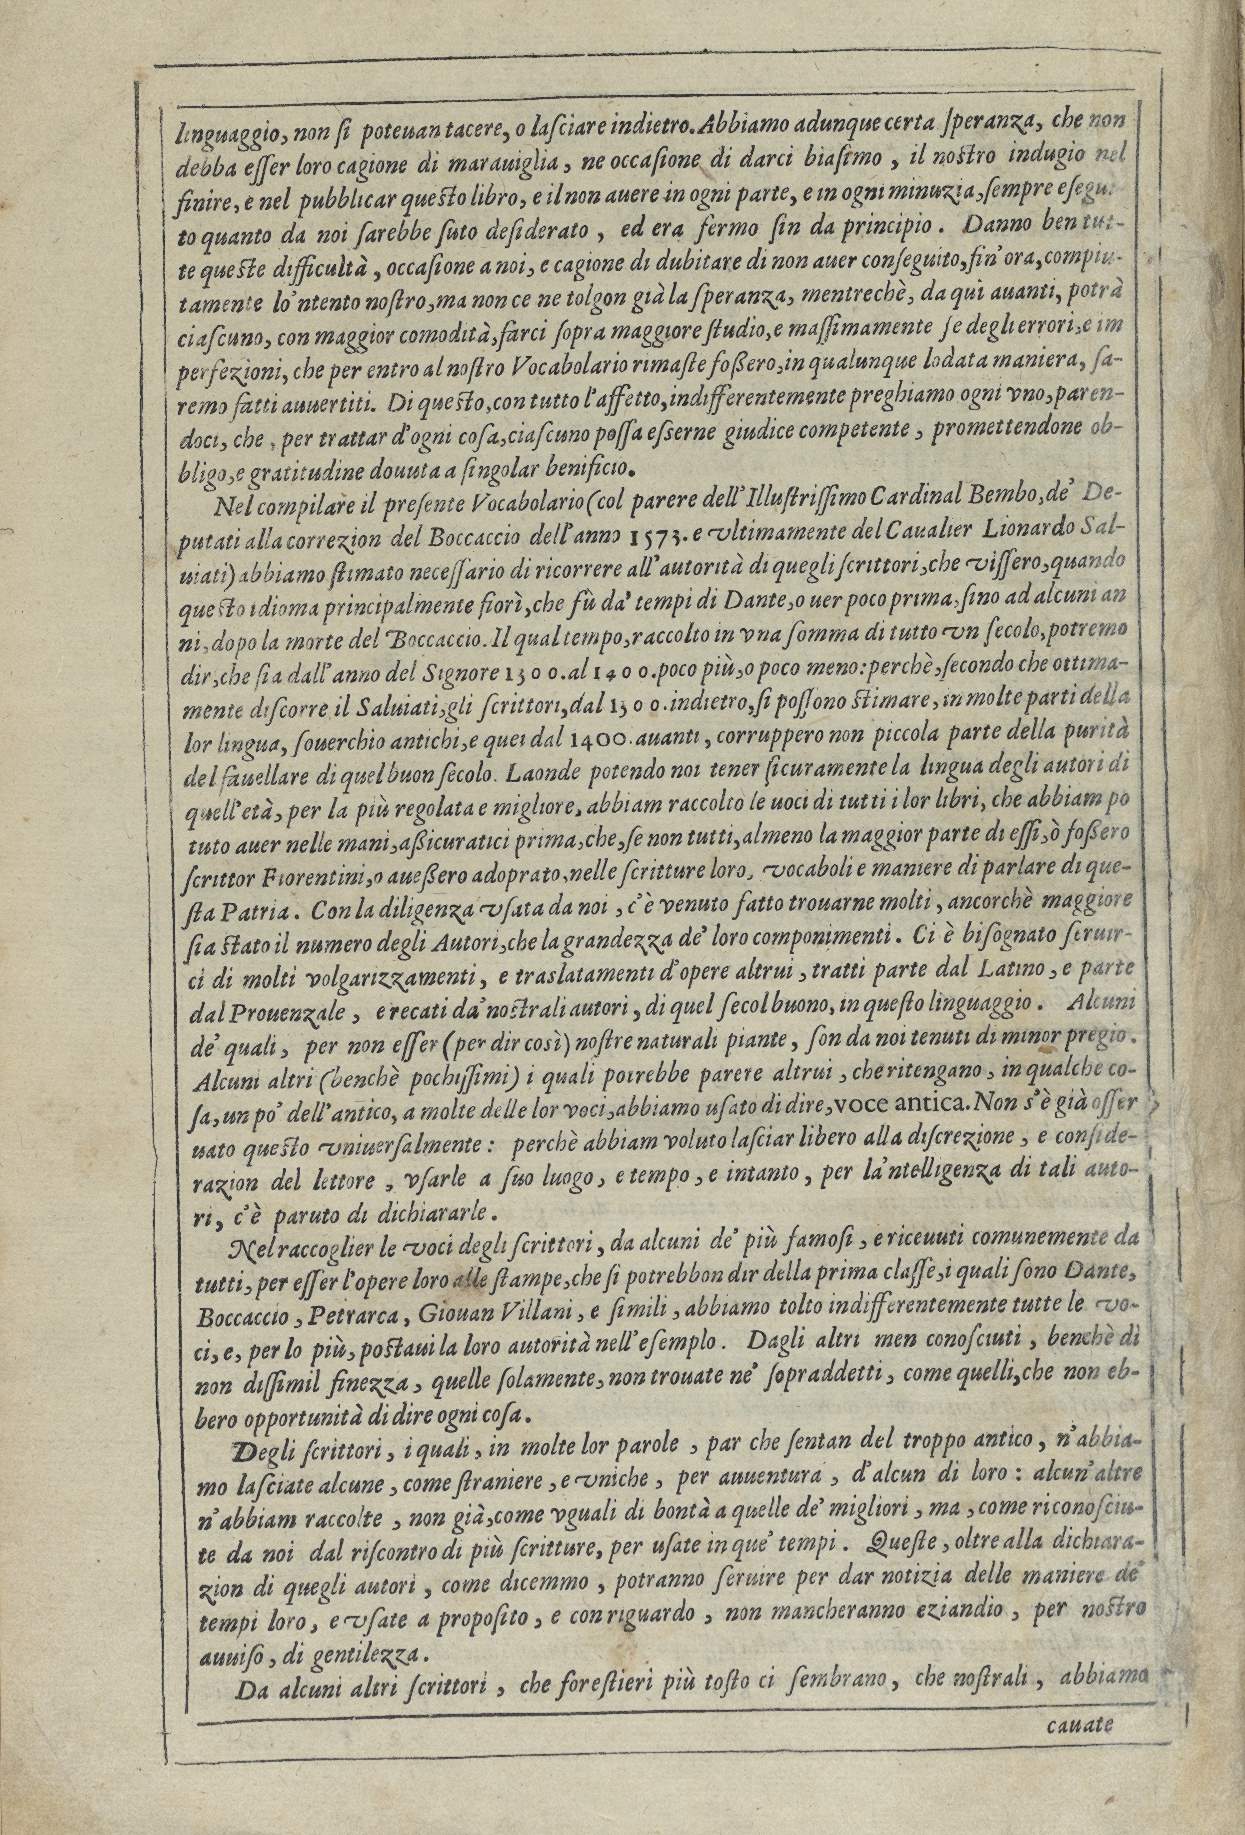 linguaggio, non ſi poteuan tacere, o laſciare indietro. Abbiamo adunque certa ſperanza, che non
debba eſſer loro cagione di marauiglia, ne occaſione di darci biaſimo, il noſtro indugio nel
finire, e nel pubblicar queſto libro, e il non auere in ogni parte, e in ogni minuzia, ſempre eſegui-
to quanto da noi ſarebbe ſuto deſiderato, ed era fermo ſin da principio. Danno ben tut-
te queſte difficultà, occaſione a noi, e cagione di dubitare di non auer conſeguito, fin' ora, compiu-
tamente lo 'ntento noſtro, ma non ce ne tolgon già la ſperanza, mentrechè, da quì auanti, potrà
ciaſcuno, con maggior comodità, farci ſopra maggiore ſtudio, e maſſimamente ſe degli errori, e im
perfezioni, che per entro al noſtro Vocabolario rimaſte foßero, in qualunque lodata maniera, ſa-
remo fatti auuertiti. Di queſto, con tutto l'affetto, indifferentemente preghiamo ogni vno, paren-
doci, che, per trattar d'ogni coſa, ciaſcuno poſſa eſſerne giudice competente, promettendone ob-
bligo, e gratitudine douuta a ſingolar benificio.
Nel compilare il preſente Vocabolario (col parere dell' Illuſtriſſimo Cardinal Bembo, de' De-
putati alla correzion del Boccaccio dell' anno 1573. e vltimamente del Caualier Lionardo Sal-
uiati) abbiamo ſtimato neceſſario di ricorrere all' autorità di quegli ſcrittori, che viſſero, quando
queſto idioma principalmente fiorì, che fù da' tempi di Dante, o uer poco prima, ſino ad alcuni an
ni, dopo la morte del Boccaccio. Il qual tempo, raccolto in vna ſomma di tutto vn ſecolo, potremo
dir, che ſia dall' anno del Signore 1300. al 1400. poco più, o poco meno: perchè, ſecondo che ottima-
mente diſcorre il Saluiati, gli ſcrittori, dal 1300. indietro, ſi poſſono ſtimare, in molte parti della
lor lingua, ſouerchio antichi, e quei dal 1400. auanti, corruppero non piccola parte della purità
del fauellare di quel buon ſecolo. Laonde potendo noi tener ſicuramente la lingua degli autori di
quell' età, per la più regolata e migliore, abbiam raccolto le uoci di tutti i lor libri, che abbiam po
tuto auer nelle mani, aßicuratici prima, che, ſe non tutti, almeno la maggior parte di eſſi, ò foßero
ſcrittor Fiorentini, o aueßero adoprato, nelle ſcritture loro, vocaboli e maniere di parlare di que-
ſta Patria. Con la diligenza vſata da noi, c'è venuto fatto trouarne molti, ancorchè maggiore
ſia ſtato il numero degli Autori, che la grandezza de' loro componimenti. Ci è biſognato ſeruir-
ci di molti volgarizzamenti, e traslatamenti d'opere altrui, tratti parte dal Latino, e parte
dal Prouenzale, e recati da' noſtrali autori, di quel ſecol buono, in queſto linguaggio. Alcuni
de' quali, per non eſſer (per dir così) noſtre naturali piante, ſon da noi tenuti di minor pregio.
Alcuni altri (benchè pochiſſimi) i quali potrebbe parere altrui, che ritengano, in qualche co-
ſa, un po' dell' antico, a molte delle lor voci, abbiamo uſato di dire, voce antica. Non s'è già oſſer
uato queſto vniuerſalmente: perchè abbiam voluto laſciar libero alla diſcrezione, e conſide-
razion del lettore, vſarle a ſuo luogo, e tempo, e intanto, per la 'ntelligenza di tali auto-
ri, c'è paruto di dichiararle.
Nel raccoglier le voci degli ſcrittori, da alcuni de' più famoſi, e riceuuti comunemente da
tutti, per eſſer l'opere loro alle ſtampe, che ſi potrebbon dir della prima claſſe, i quali ſono Dante,
Boccaccio, Petrarca, Giouan Villani, e ſimili, abbiamo tolto indifferentemente tutte le vo-
ci, e, per lo più, poſtaui la loro autorità nell' eſemplo. Dagli altri men conoſciuti, benchè di
non diſſimil finezza, quelle ſolamente, non trouate ne' ſopraddetti, come quelli, che non eb-
bero opportunità di dire ogni coſa.
Degli ſcrittori, i quali, in molte lor parole, par che ſentan del troppo antico, n'abbia-
mo laſciate alcune, come ſtraniere, e vniche, per auuentura, d'alcun di loro: alcun' altre
n'abbiam raccolte, non già, come vguali di bontà a quelle de' migliori, ma, come riconoſciu-
te da noi dal riſcontro di più ſcritture, per uſate in que' tempi. Queſte, oltre alla dichiara-
zion di quegli autori, come dicemmo, potranno ſeruire per dar notizia delle maniere de'
tempi loro, e vſate a propoſito, e con riguardo, non mancheranno eziandio, per noſtro
auuiſo, di gentilezza.
Da alcuni altri ſcrittori, che foreſtieri più toſto ci ſembrano, che noſtrali, abbiamo
cauate